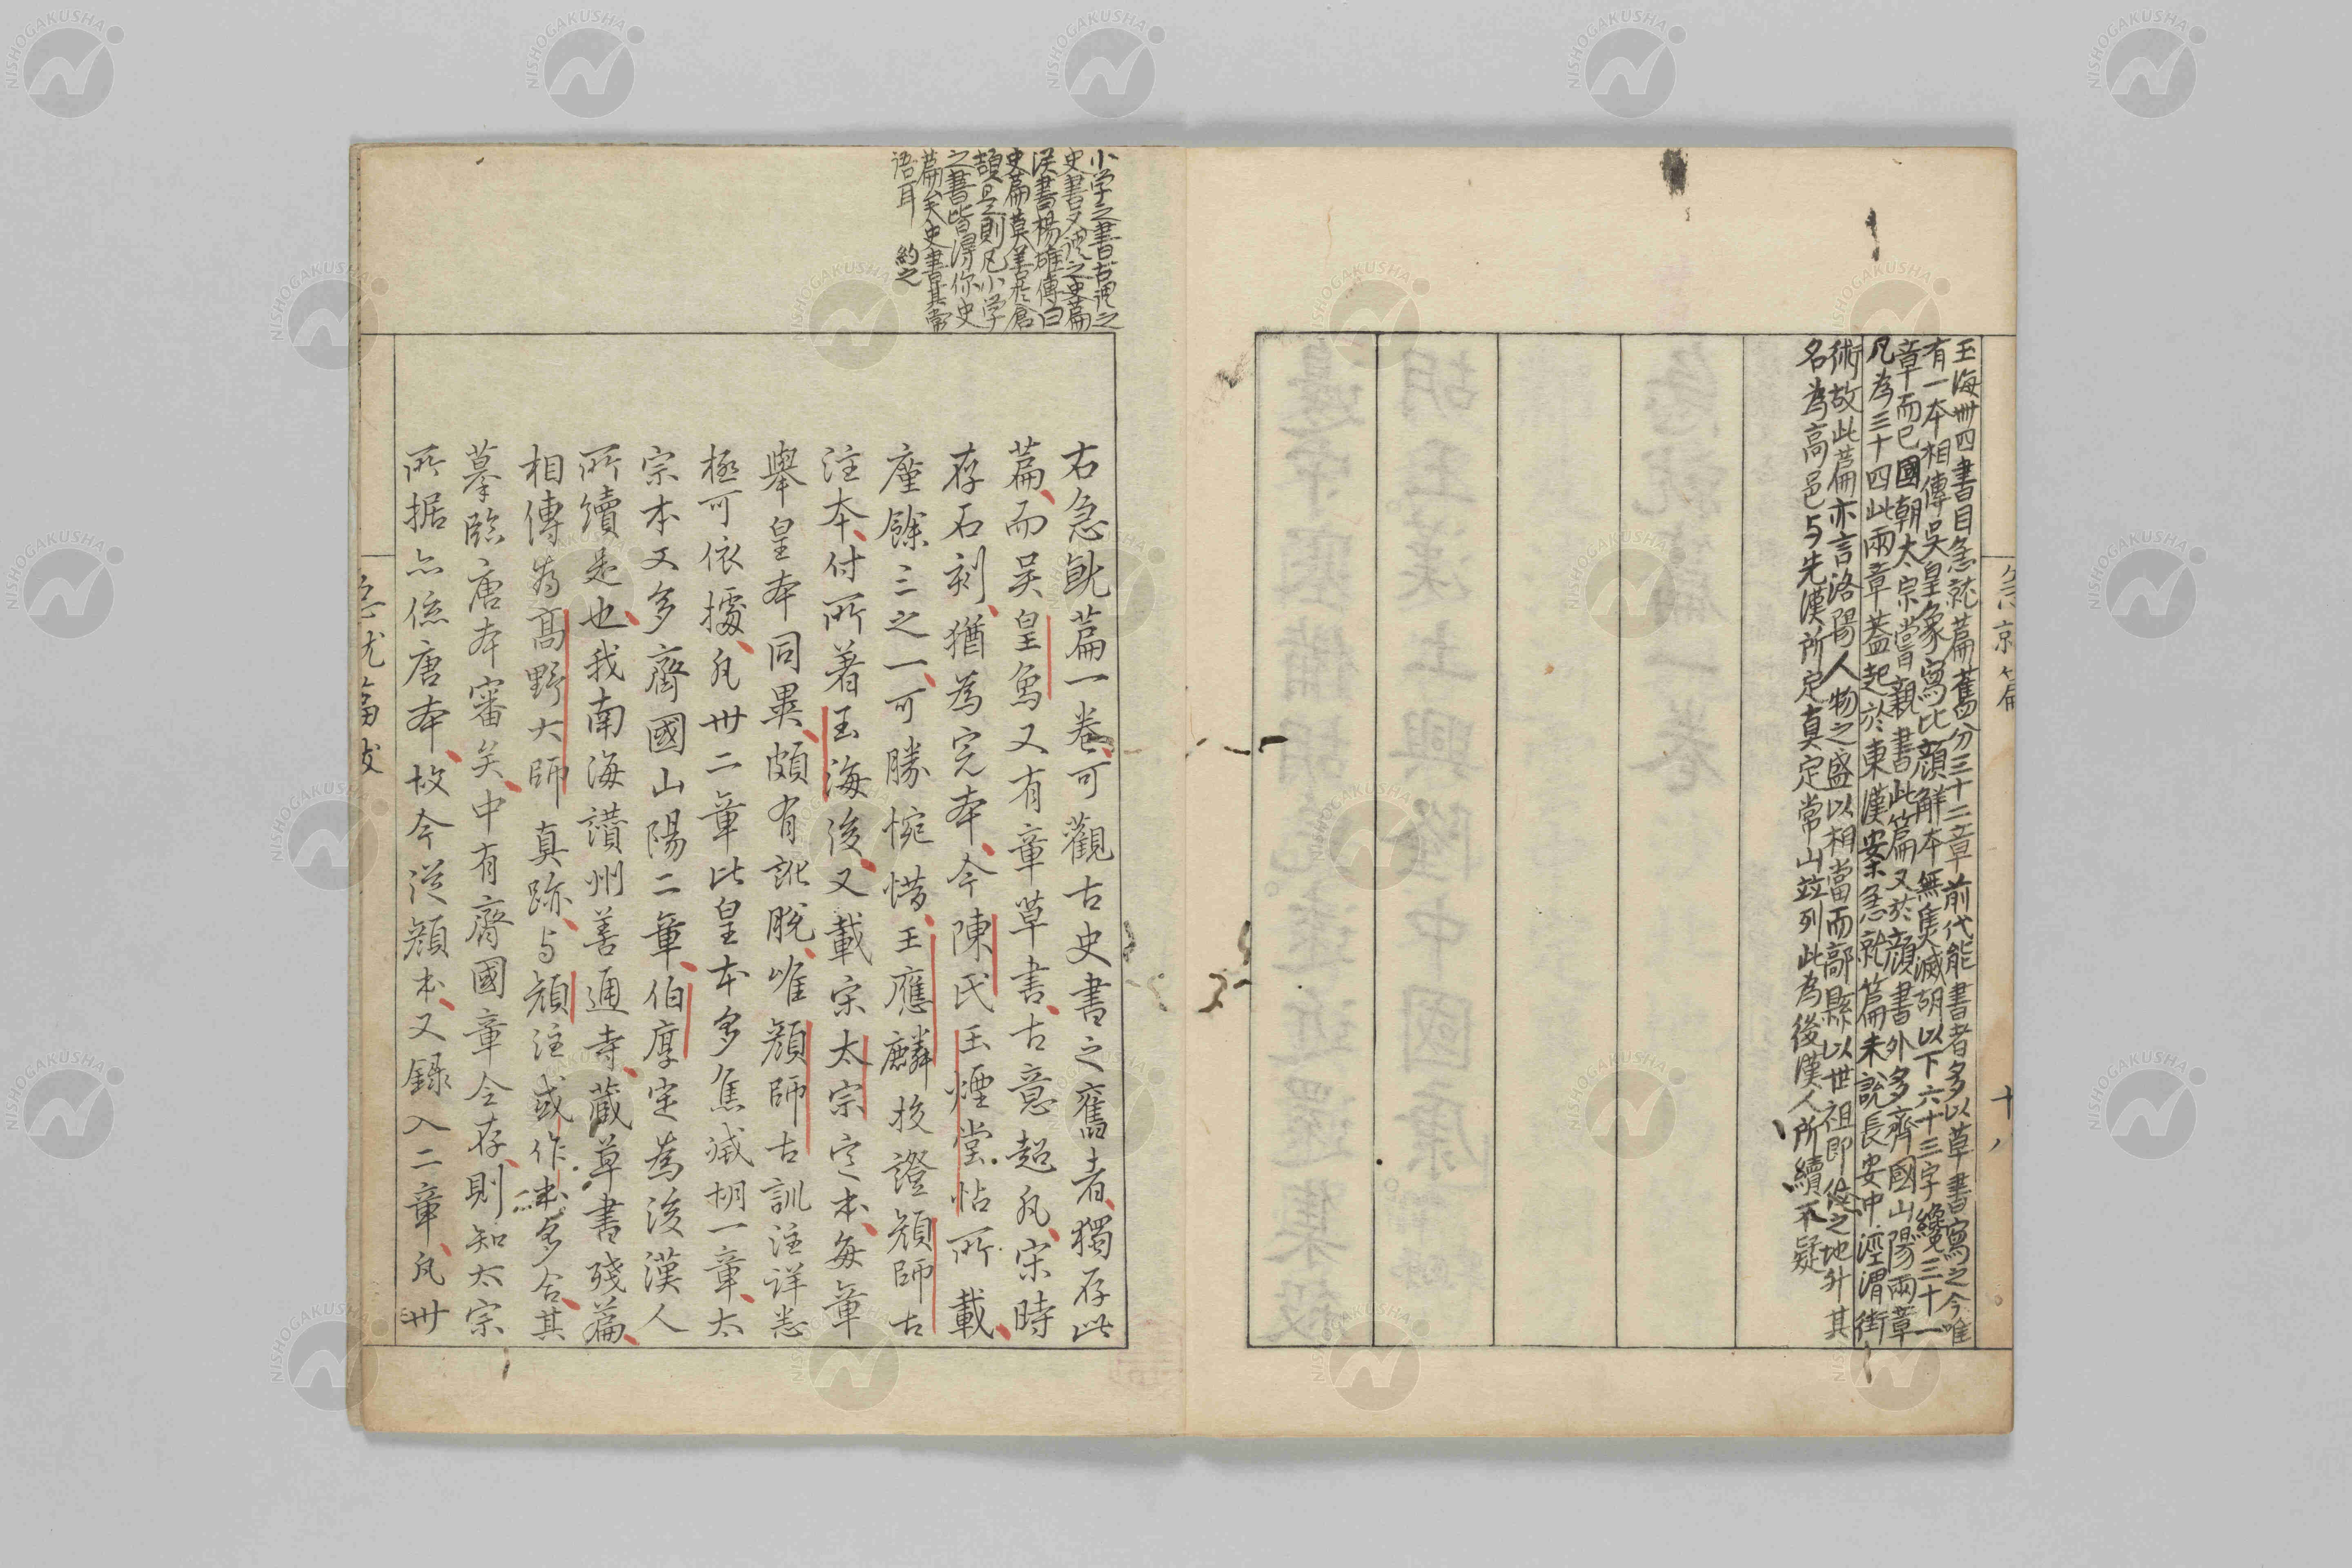 玉海卌四書目急就篇舊分三十二章前代能書者多以草書寫之今唯
有一本相傳吳皇象寫比顏解本無焦滅胡以下六十三字纔三十一
章而已國朝太宗嘗親書此篇又於顏書外多齊國山陽兩章
凡為三十四此兩章蓋起於東漢案急就篇末說長安中涇渭街
術故此篇亦言洛陽人物之盛以相當而鄗縣以世祖即位之地升其
名為高邑与先漢所定真定常山竝列此為後漢人所續不疑
急就篇
十八
小学之書古謂之
史書又謂之史篇
漢書楊雄傳曰
史篇莫善於倉
頡是則凡小学
之書皆得你史
篇矣史書其常
语耳 約之
右急就篇一卷可觀古史書之舊者獨存此
篇而吴皇象又有章草書古意超凡宋時
存石刻猶為完本今陳氏玉煙堂帖所載
廑餘三之一可勝惋惜王應麟校證顔師古
注本付所著玉海後又載宋太宗定本每章
舉皇本同異頗有訛脫唯顔師古訓注详悉
極可依據凡卅二章比皇本多焦滅胡一章太
宗本又多齊國山陽二章伯厚定為後漢人
所續是也我南海讃州善通寺蔵草書殘篇
相傳為髙野大師真跡与顔注或作本多合其
摹臨唐本審矣中有齊國章今存則知太宗
所据亦係唐本故今從顔本又録入二章凡卅
急就篇跋